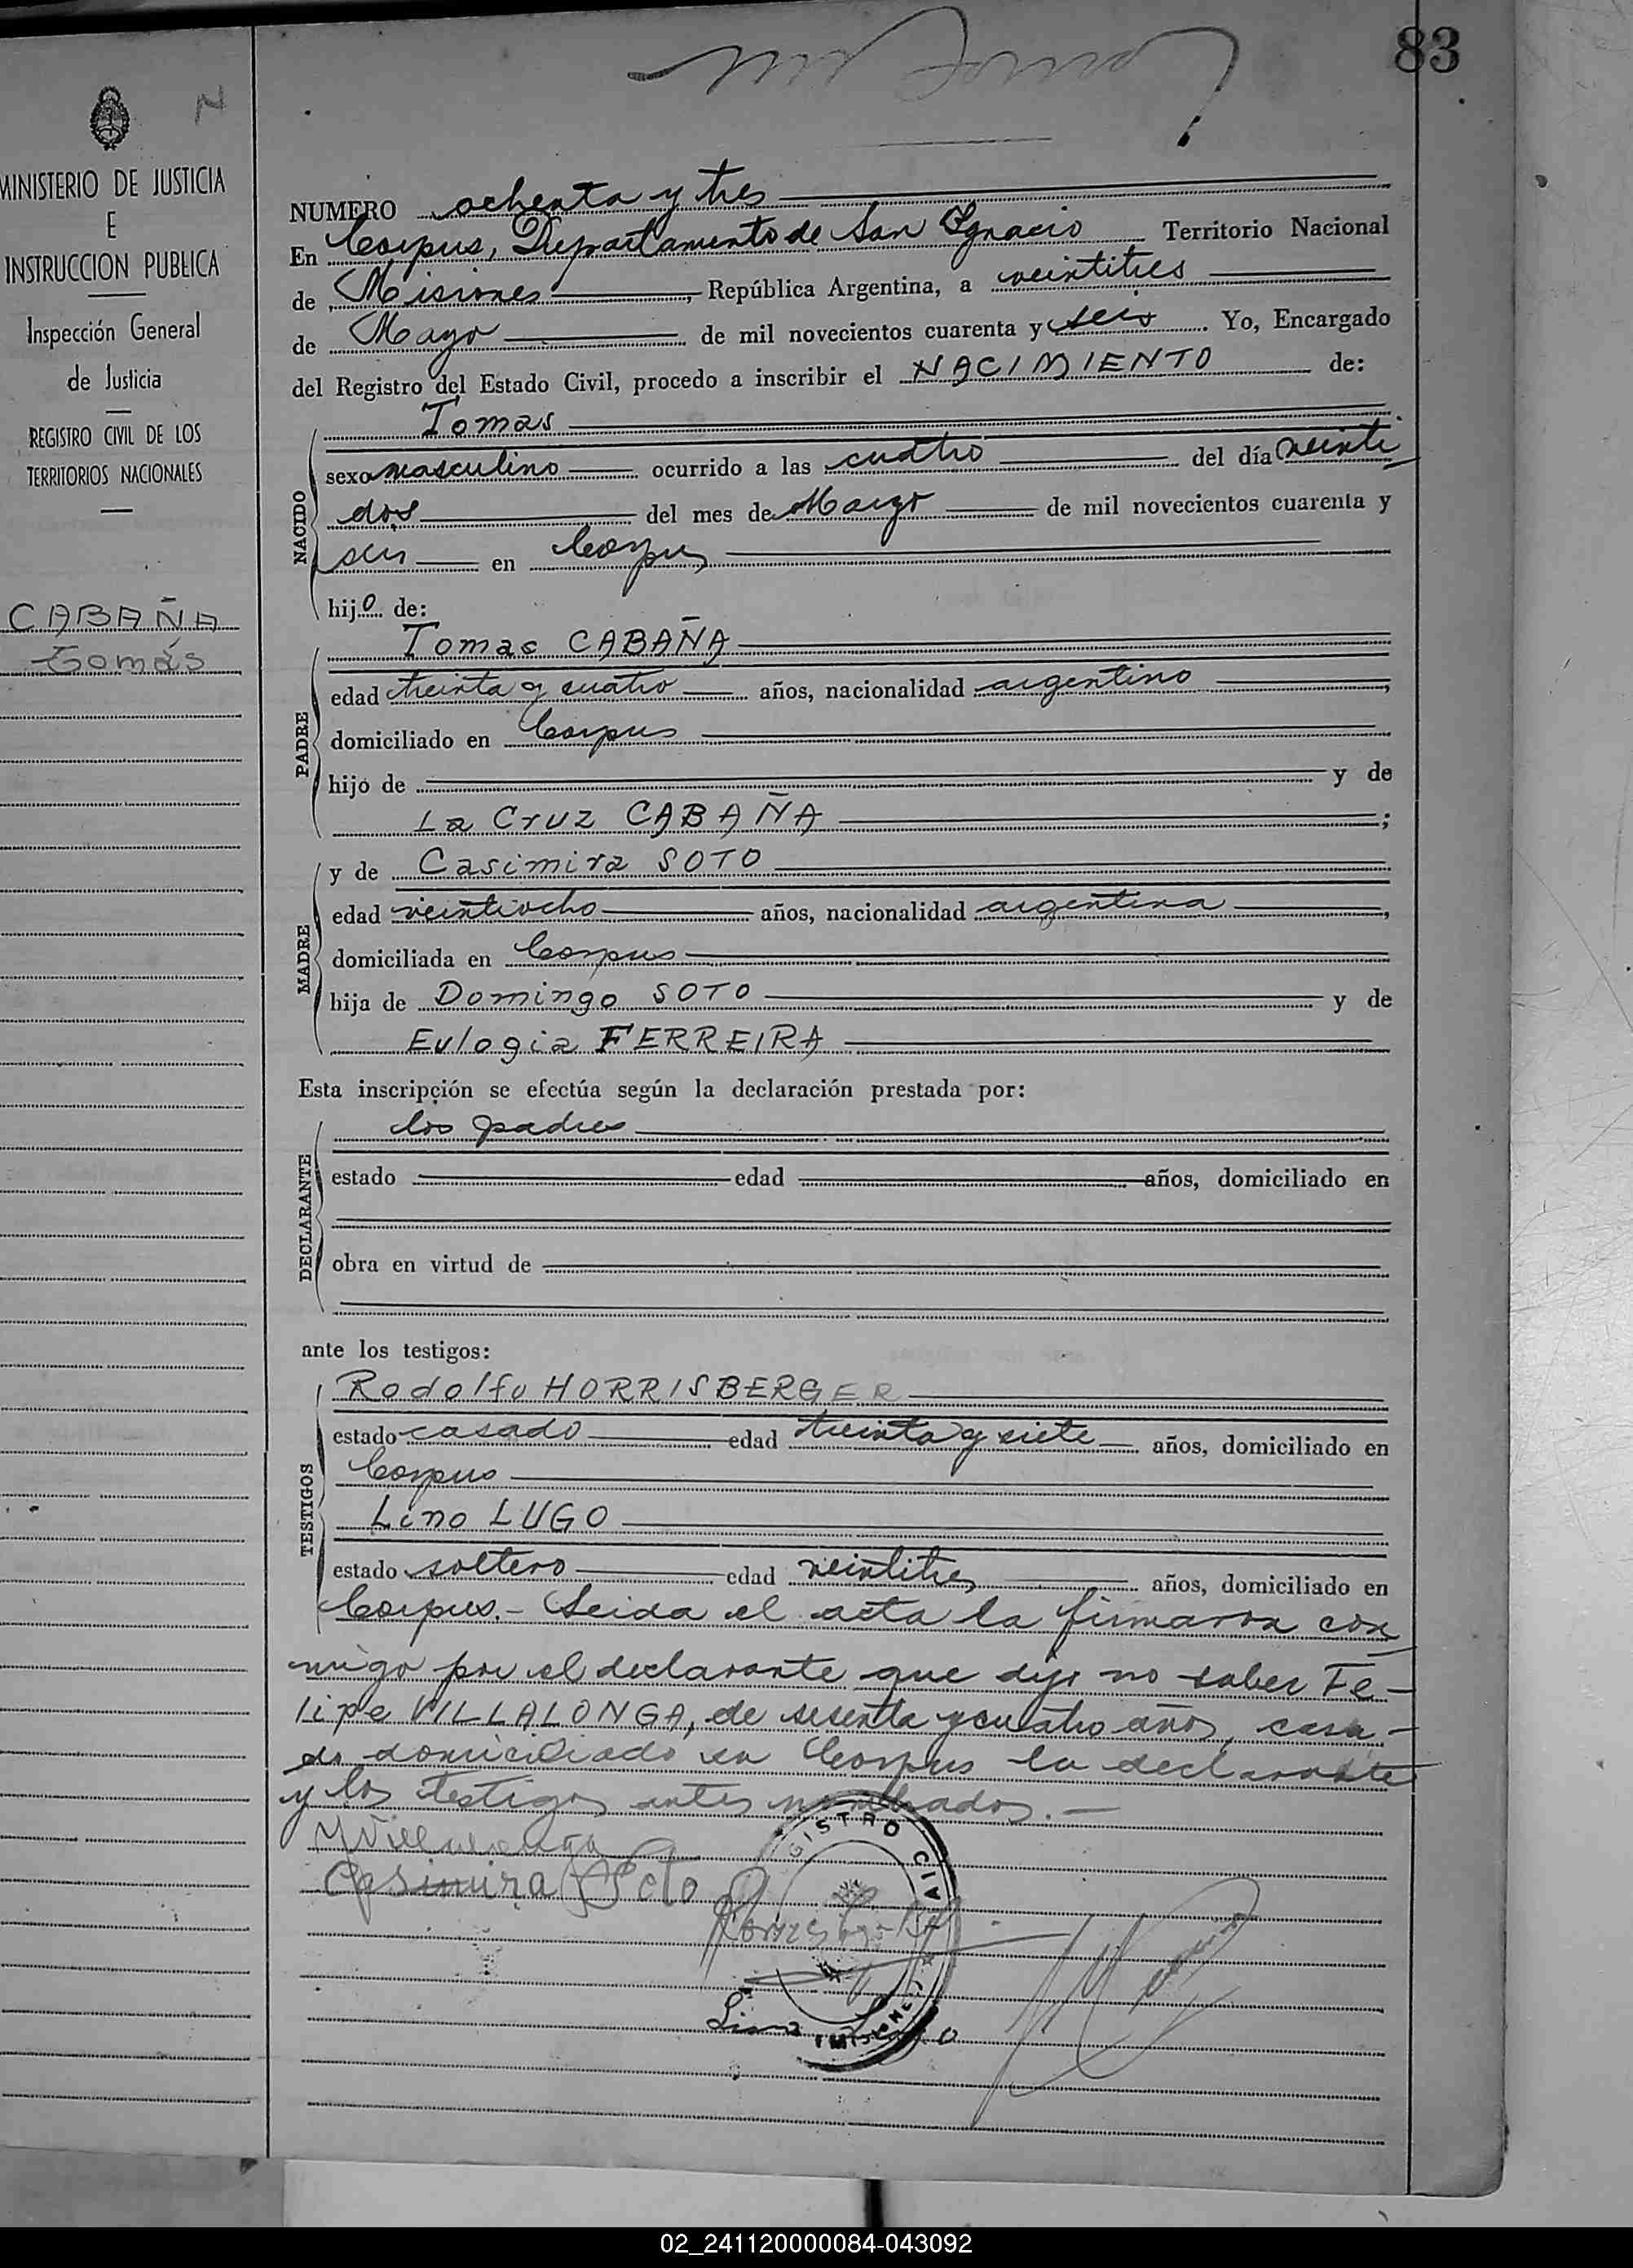 83
N
MINISTERIO DE JUSTICIA
E
INSTRUCCION PUBLICA
Inspección General
de Justicia
REGISTRO CIVIL DE LOS
TERRITORIOS NACIONALES
CABAÑA
Tomás
NUMERO ochenta y tres
En Corpus, Departamento de San Ignacio Territorio Nacional
de Misiones, República Argentina, a veintitres
de Mayo de mil novecientos cuarenta y seis. Yo, Encargado
del Registro del Estado Civil, procedo a inscribir el NACIMIENTO de:
NACIDO
Tomas
sexo masculino ocurrido a las cuatro del día veinti
dos del mes de Marzo de mil novecientos cuarenta y
seis en Corpus
hijo de:
PADRE
Tomas CABAÑA
edad treinta y cuatro años, nacionalidad argentino,
domiciliado en Corpus
hijo de y de
La Cruz CABAÑA;
MADRE
y de Casimira SOTO
edad veintiocho años, nacionalidad argentina,
domiciliada en Corpus
hija de Domingo SOTO y de
Eulogia FERREIRA
Esta inscripción se efectúa según la declaración prestada por:
DECLARANTE
los padres
estado edad años, domiciliado en
obra en virtud de
ante los testigos:
TESTIGOS
Rodolfo HORRISBERGER
estado casado edad treinta y siete años, domiciliado en
Corpus
Lino LUGO
estado soltero edad veintitres años, domiciliado en
Corpus.- Leida el acta la firmaron con
migo por el declarante que dijo no saber Fe-
lipe VILLALONGA, de sesenta y cuatro años, casa-
do domiciliado en Corpus la declarante
y los testigos antes nombrados.-
Casimira Soto
REGISTRO CIVIL
MISIONES
Lino Lugo
02_241120000084-043092